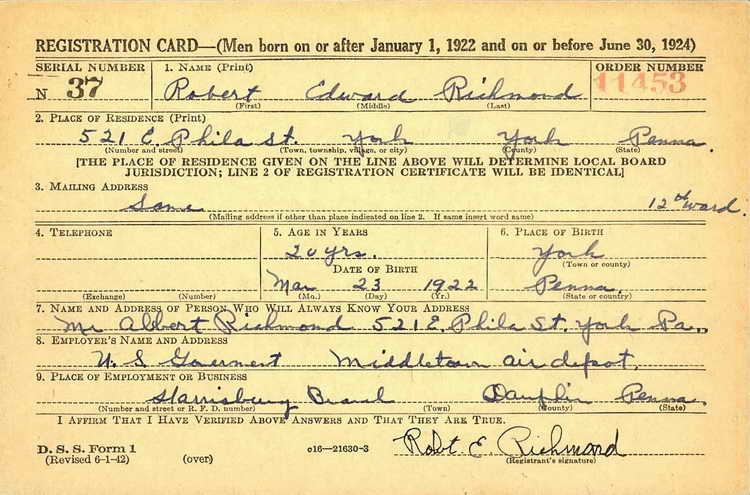 REGISTRATION CARD—(Men born on or after January 1, 1922 and on or before June 30, 1924)
SERIAL NUMBER 1. NAME (Print) ORDER NUMBER
N 37 Robert Edward Richmond 11453
(First) (Middle) (Last)
2. PLACE OF RESIDENCE (Print)
521 E. Phila St. York York Penna.
(Number and street) (Town, township, village, or city) (County) (State)
[THE PLACE OF RESIDENCE GIVEN ON THE LINE ABOVE WILL DETERMINE LOCAL BOARD
JURISDICTION; LINE 2 OF REGISTRATION CERTIFICATE WILL BE IDENTICAL]
3. MAILING ADDRESS
Same 12th ward.
(Mailing address if other than place indicated on line 2. If same insert word same)
4. TELEPHONE 5. AGE IN YEARS 6. PLACE OF BIRTH
20 yrs. York
(Town or county)
DATE OF BIRTH
Mar 23 1922 Penna.
(Exchange) (Number) (Mo.) (Day) (Yr.) (State or country)
7. NAME AND ADDRESS OF PERSON WHO WILL ALWAYS KNOW YOUR ADDRESS
Mr Albert Richmond 521 E. Phila St. York Pa.
8. EMPLOYER'S NAME AND ADDRESS
U. S Goverment Middletown air depot.
9. PLACE OF EMPLOYMENT OR BUSINESS
Harrisburg Dauphin Penna.
(Number and street or R. F. D. number) (Town) (County) (State)
I AFFIRM THAT I HAVE VERIFIED ABOVE ANSWERS AND THAT THEY ARE TRUE.
D. S. S. Form 1
(Revised 6-1-42) (over) c16—21630-3 Robt E. Richmond
(Registrant's signature)